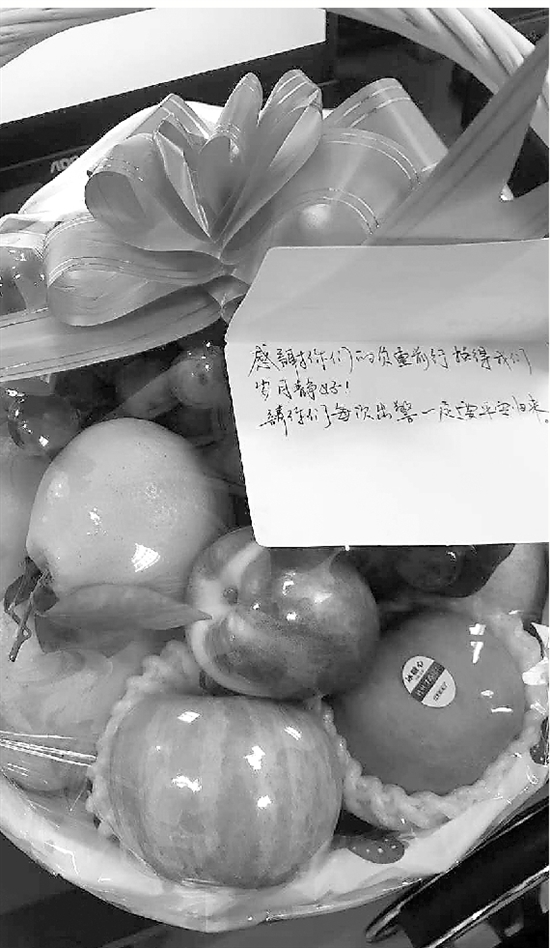 感谢你们的负重前行 换得我们
岁月静好!
请你们每次出警一定要平安归来。
AOC
冰糖心